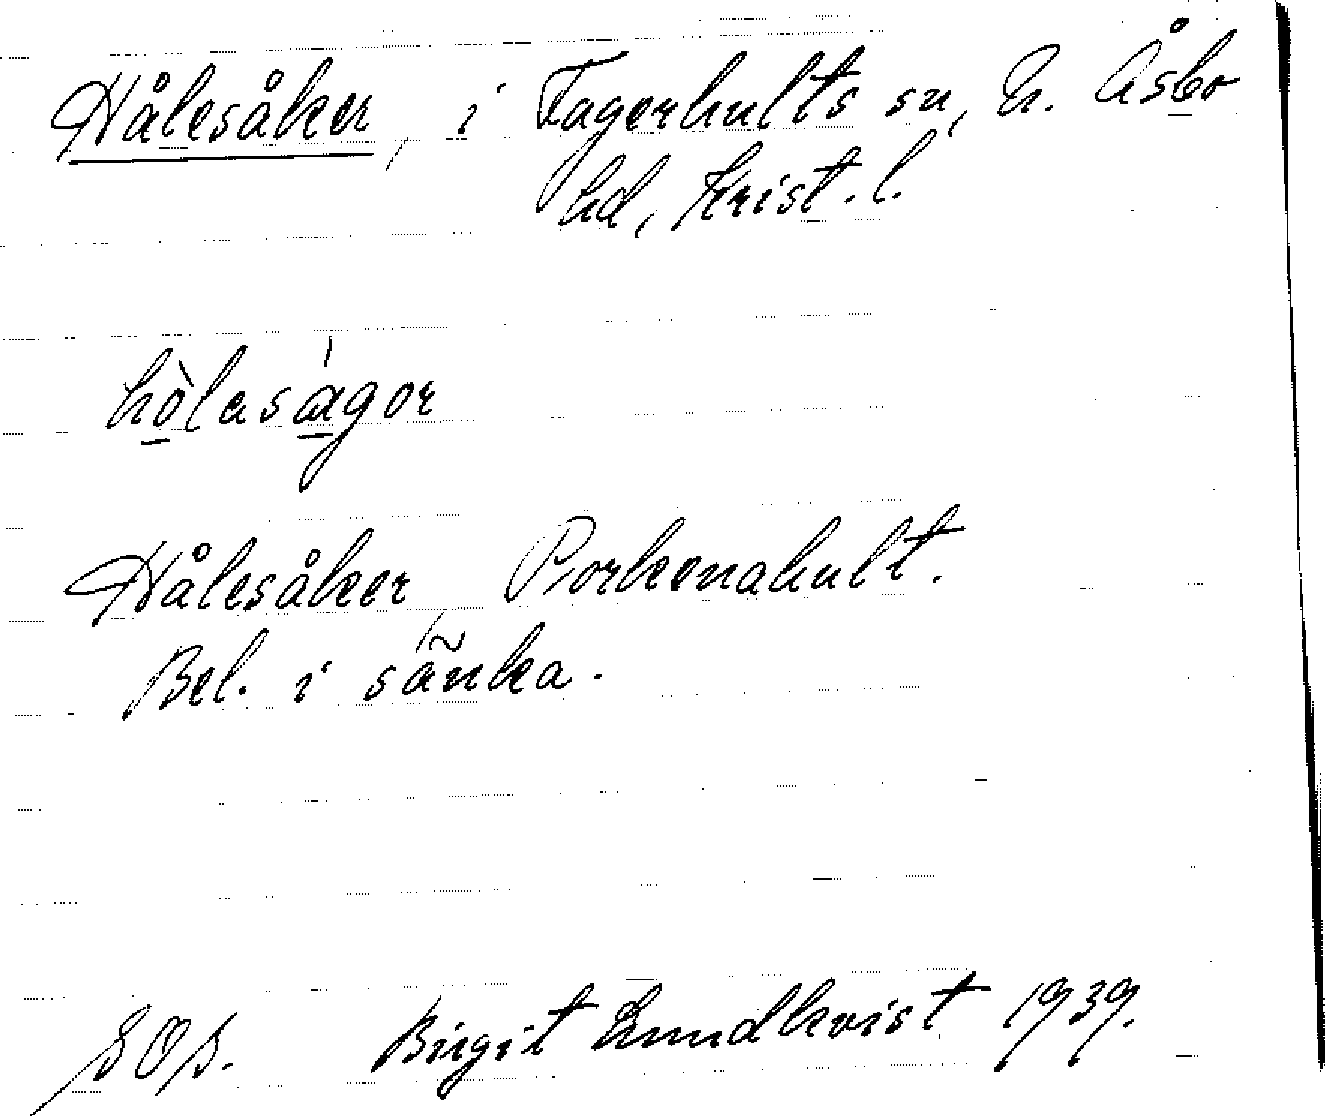 Hålesåker, i Fagerhults sn, N. Åsbo
hd, Krist. l.
hòlaságor
Hålesåker Porkenahult.
Bel. i sänka.
Birgit Lundkvist 1939.